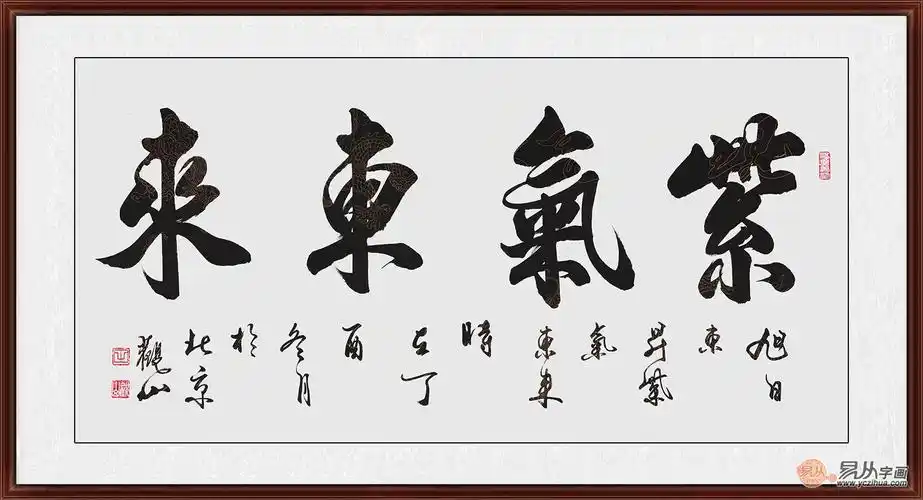 紫氣東來
旭日
東
昇紫
氣
東來
時
在丁
酉
冬月
於
北京
觀山
易从
易从字画
www.yczihua.com